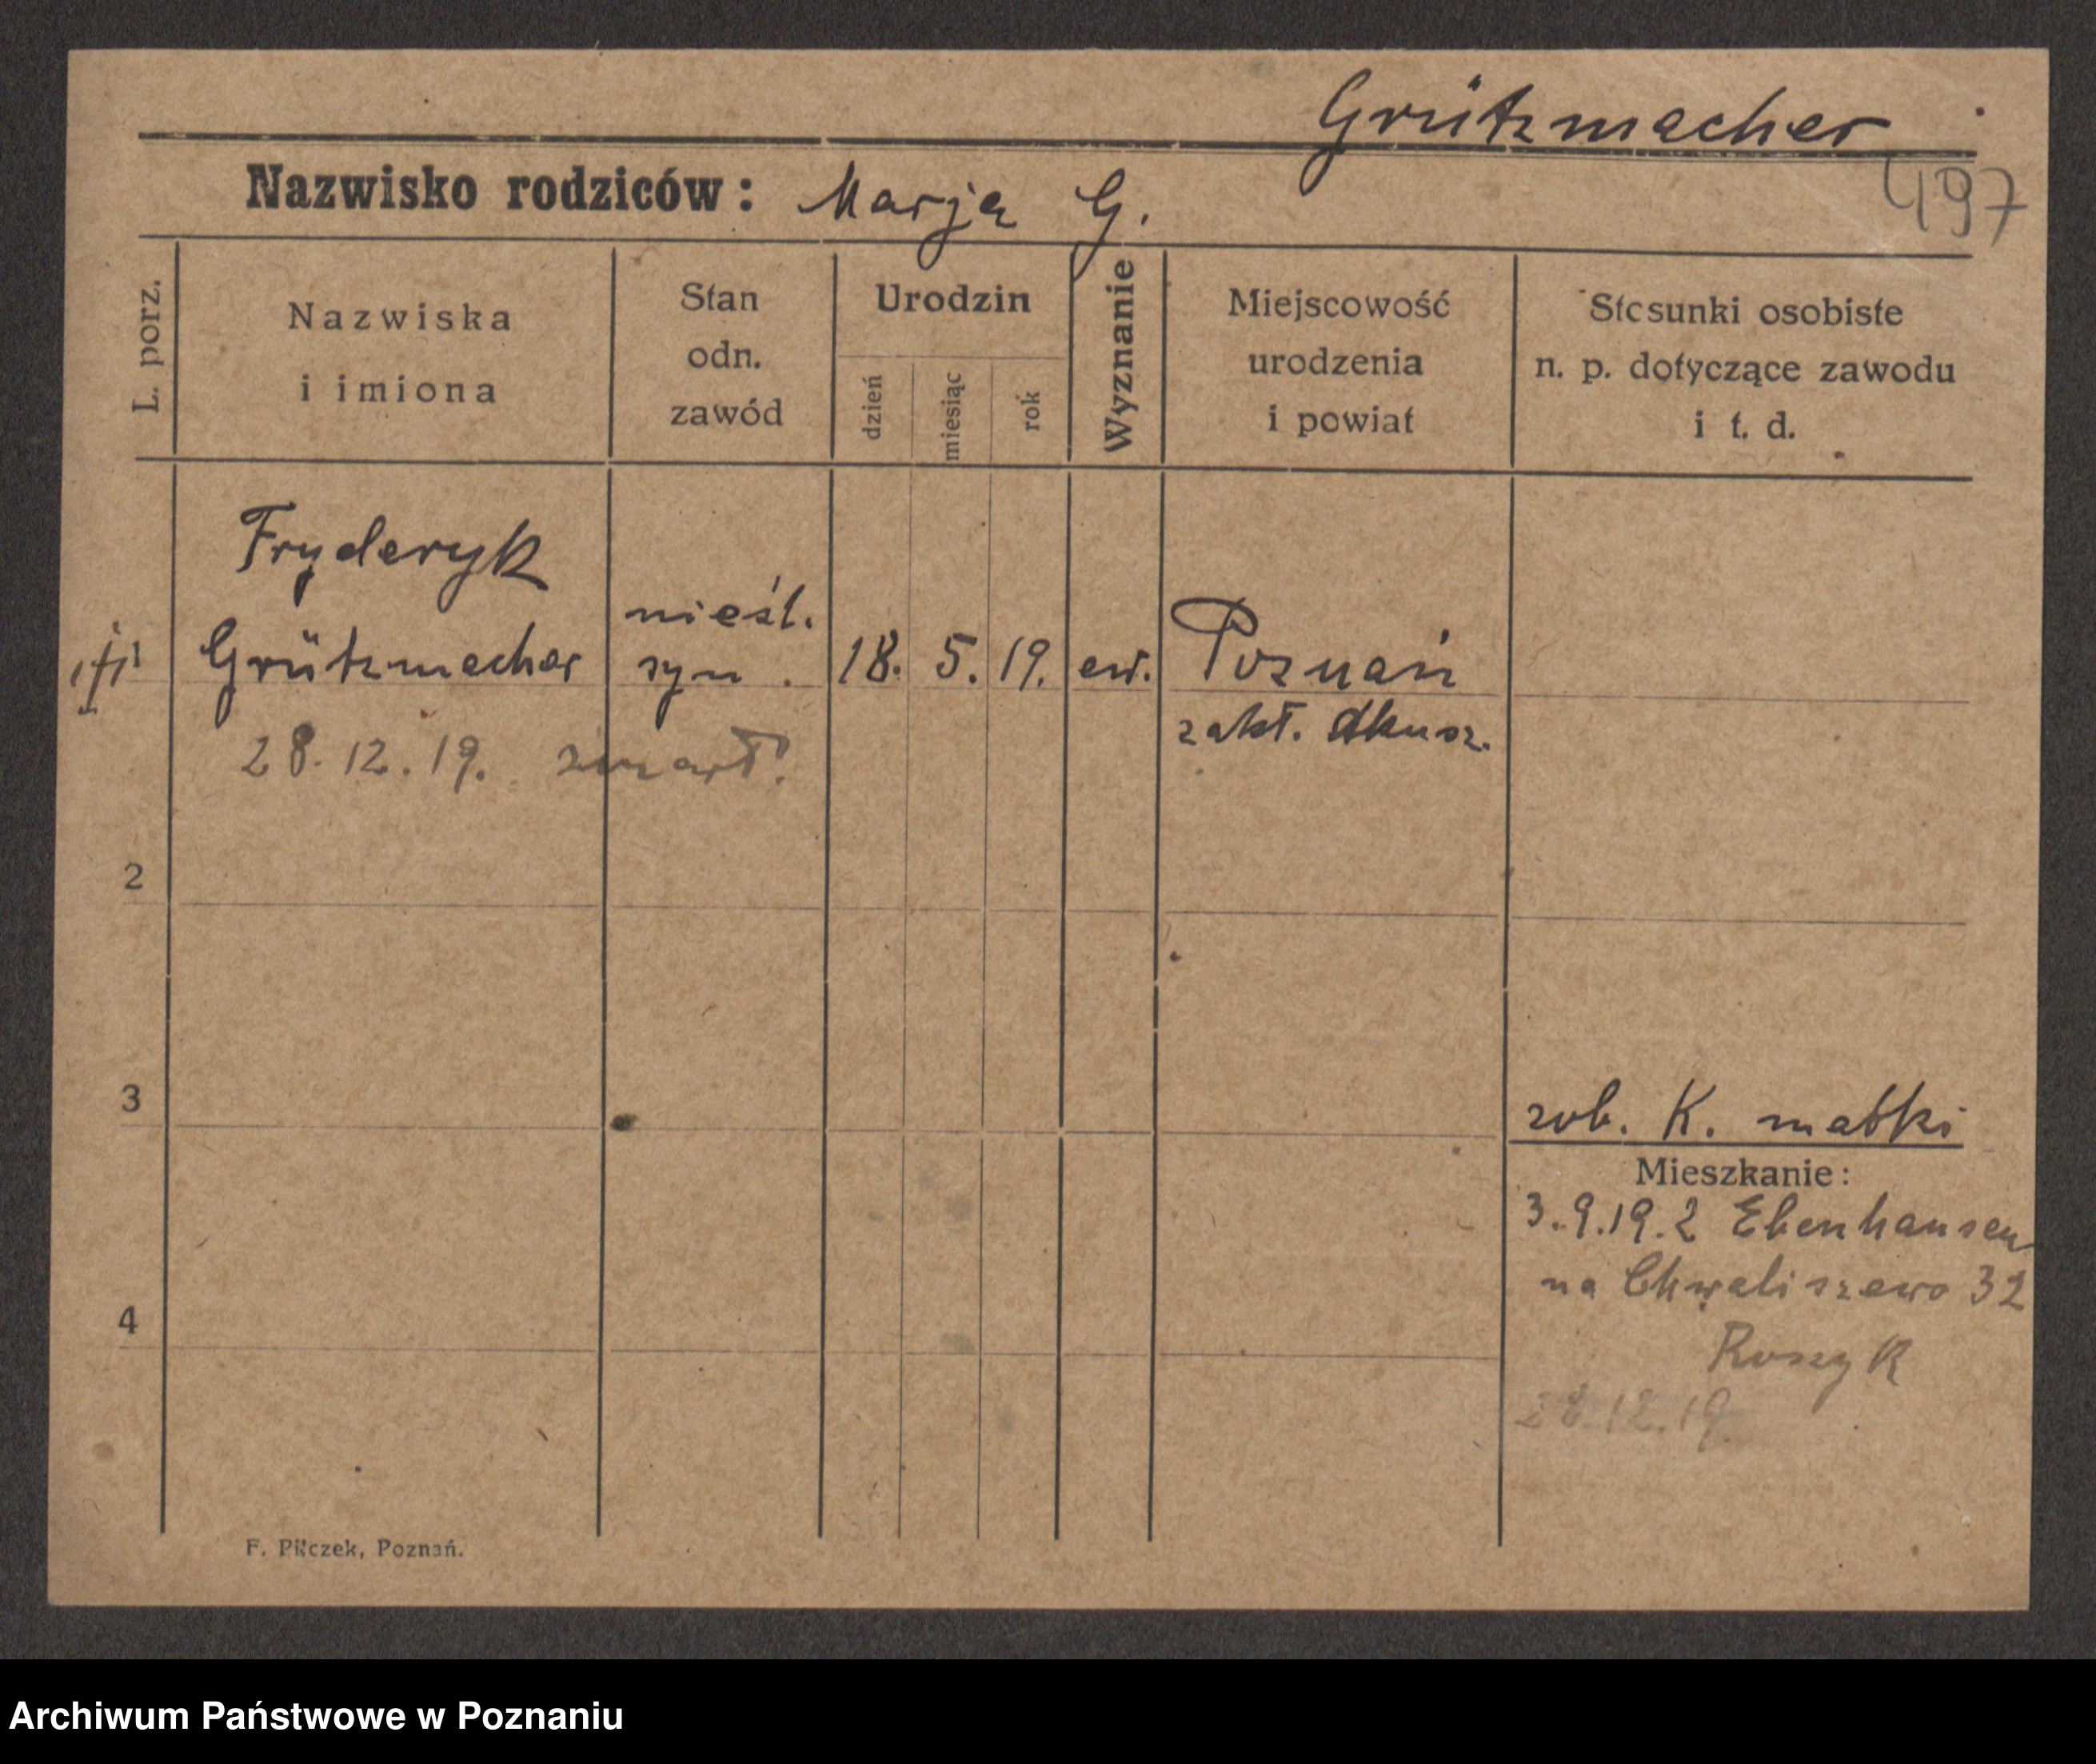 Grützmacher
497
Nazwisko rodziców: Marja G.
L. porz.
Nazwiska
i imiona
Stan
odn.
zawód
Urodzin
dzień
miesiąc
rok
Wyznanie
Miejscowość
urodzenia
i powiat
Stosunki osobiste
n. p. dotyczące zawodu
i t. d.
Fryderyk
1 Grützmacher
nieśl.
syn.
18. 5. 19. ew.
Poznań
zakł. akusz.
28.12.19. zmarł!
2
3
zob. K. matki
Mieszkanie:
3.9.19. z Ebenhausen
na Chwaliszewo 32
4
28.12.19
F. Pilczek, Poznań.
Archiwum Państwowe w Poznaniu